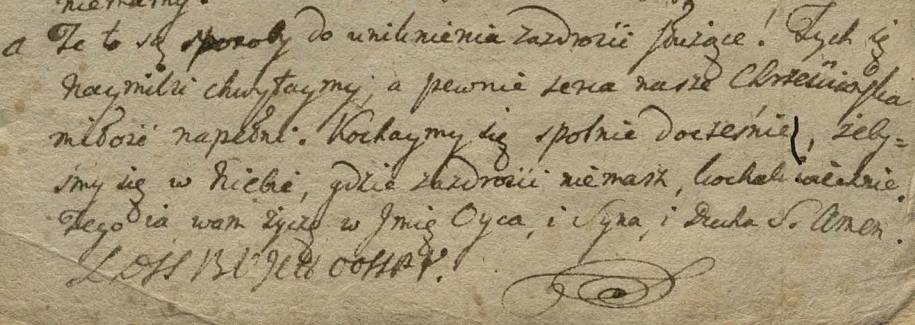 niemamy.
a Te to są sposoby do uniknienia zazdrości służące! Tych się
Naymilsi chwytaymy, a pewnie serca nasze Chrześciańska
miłość napełni. Kochaymy się spolnie docześnie, żeby=
śmy się w Niebie, gdzie zazdrości niemasz, kochali wiecznie.
Tego ia wam życzę w Jmię Oyca, i Syna, i Ducha S. Amen.